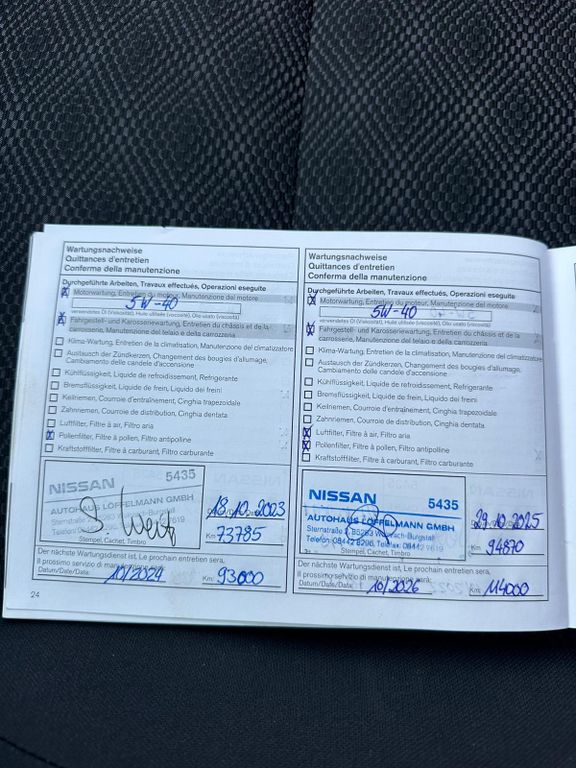 Wartungsnachweise
Quittances d'entretien
Conferma della manutenzione
Durchgeführte Arbeiten, Travaux effectués, Operazioni eseguite
X Motorwartung, Entretien du moteur, Manutenzione del motore
5W-40
verwendetes Öl (Viskosität), Huile utilisée (viscosité), Olio usato (viscosità)
X Fahrgestell- und Karosseriewartung, Entretien du châssis et de la
carrosserie, Manutenzione del telaio e della carrozzeria
Klima-Wartung, Entretien de la climatisation, Manutenzione del climatizzatore
Austausch der Zündkerzen, Changement des bougies d'allumage,
Cambiamento delle candele d'accensione
Kühlflüssigkeit, Liquide de refroidissement, Refrigerante
Bremsflüssigkeit, Liquide de frein, Liquido dei freni
Keilriemen, Courroie d'entraînement, Cinghia trapezoidale
Zahnriemen, Courroie de distribution, Cinghia dentata
Luftfilter, Filtre à air, Filtro aria
X Pollenfilter, Filtre à pollen, Filtro antipolline
Kraftstofffilter, Filtre à carburant, Filtro carburante
NISSAN 5435
AUTOHAUS LÖFFELMANN GMBH
Stempel, Cachet, Timbro
18.10.2023
Km: 73785
Der nächste Wartungsdienst ist, Le prochain entretien sera,
Il prossimo servizio di manutenzione sarà:
Datum/Date/Data: 10/2024 Km: 93000
24
Wartungsnachweise
Quittances d'entretien
Conferma della manutenzione
Durchgeführte Arbeiten, Travaux effectués, Operazioni eseguite
X Motorwartung, Entretien du moteur, Manutenzione del motore
5W-40
verwendetes Öl (Viskosität), Huile utilisée (viscosité), Olio usato (viscosità)
X Fahrgestell- und Karosseriewartung, Entretien du châssis et de la
carrosserie, Manutenzione del telaio e della carrozzeria
Klima-Wartung, Entretien de la climatisation, Manutenzione del climatizzatore
Austausch der Zündkerzen, Changement des bougies d'allumage,
Cambiamento delle candele d'accensione
Kühlflüssigkeit, Liquide de refroidissement, Refrigerante
Bremsflüssigkeit, Liquide de frein, Liquido dei freni
Keilriemen, Courroie d'entraînement, Cinghia trapezoidale
Zahnriemen, Courroie de distribution, Cinghia dentata
X Luftfilter, Filtre à air, Filtro aria
X Pollenfilter, Filtre à pollen, Filtro antipolline
Kraftstofffilter, Filtre à carburant, Filtro carburante
NISSAN 5435
AUTOHAUS LÖFFELMANN GMBH
Telefon: 08442 8296, Telefax: 08442 7619
Stempel, Cachet, Timbro
29.10.2025
Km: 94870
Der nächste Wartungsdienst ist, Le prochain entretien sera,
Il prossimo servizio di manutenzione sarà:
Datum/Date/Data: 10/2026 Km: 114000